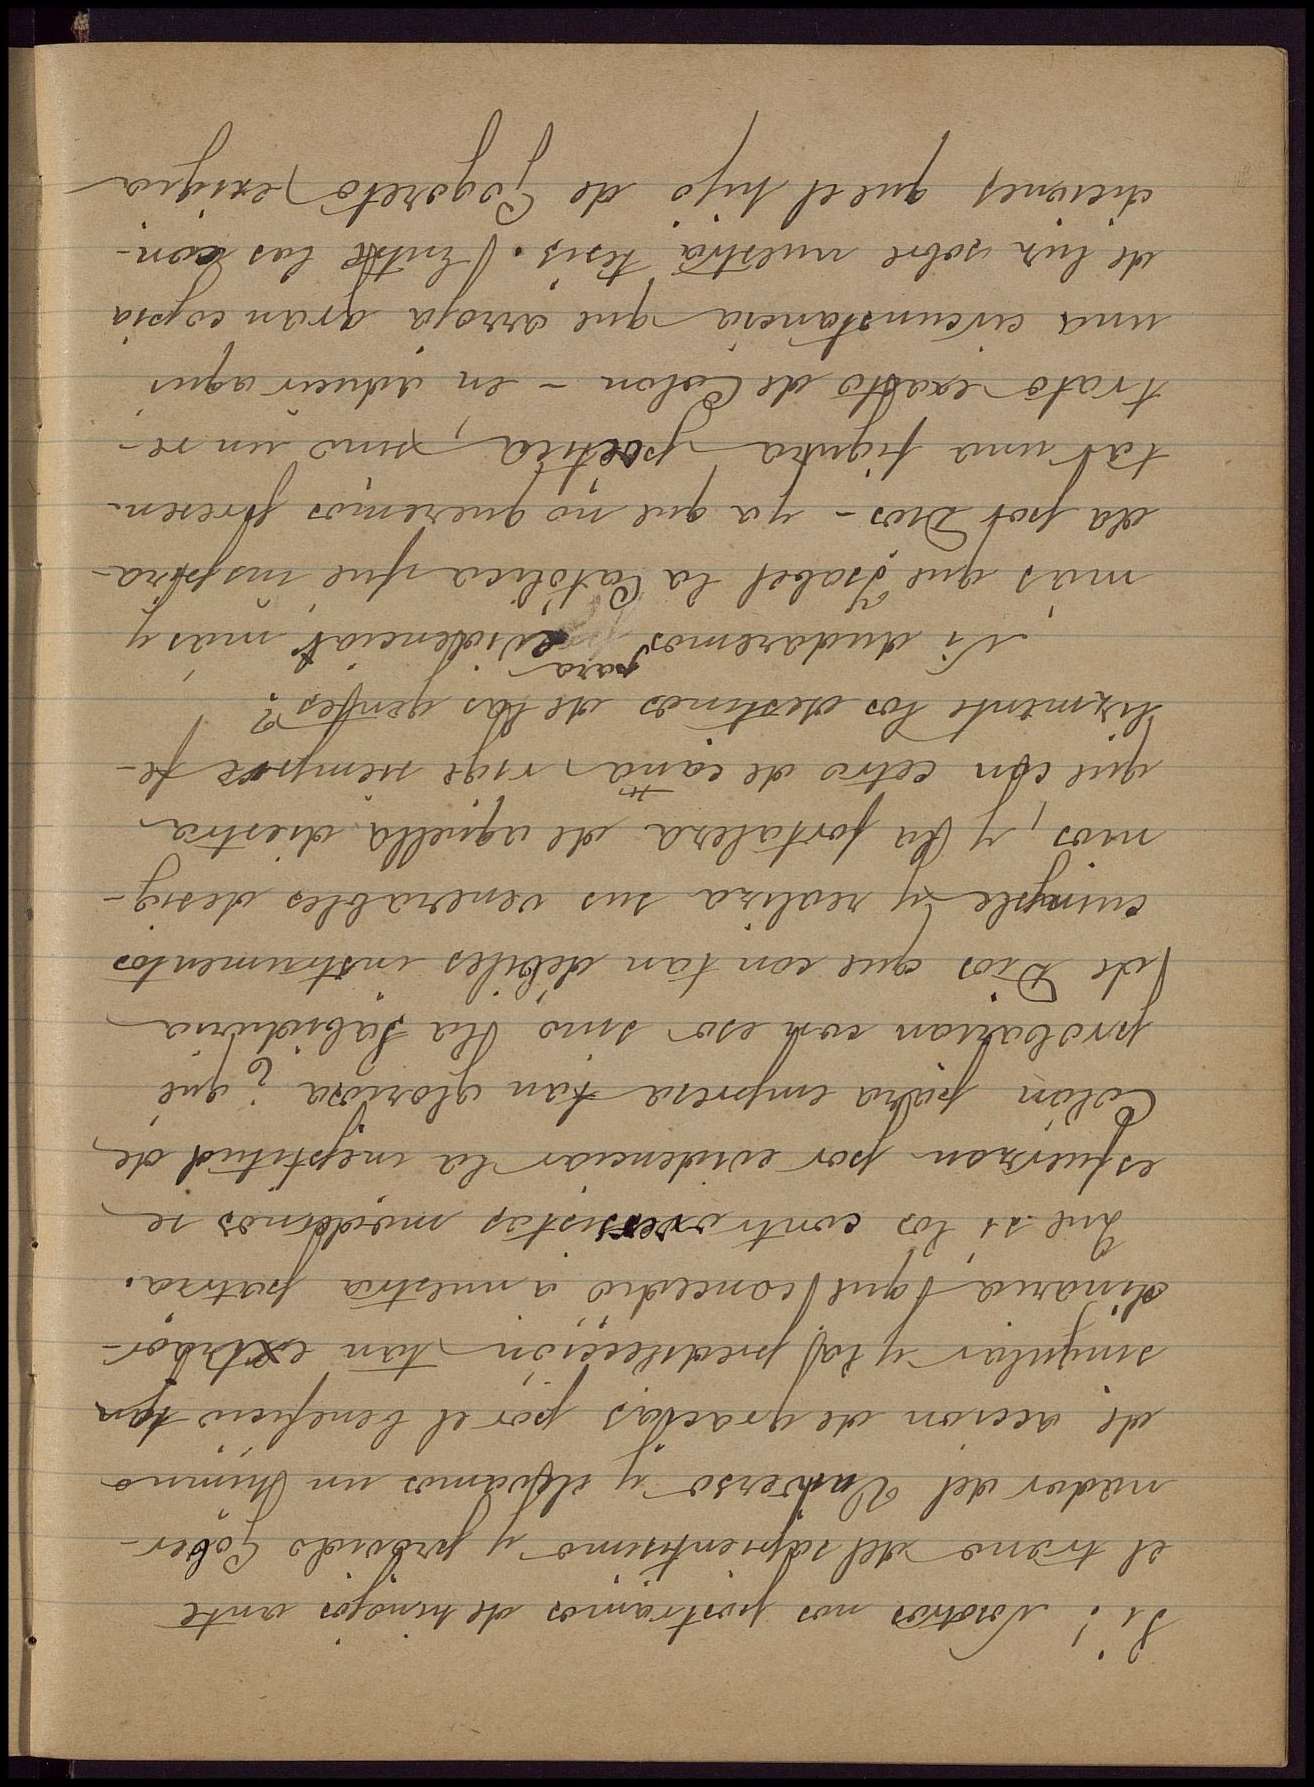 Si! Nosotros nos postramos de hinojos ante
el trono del sapientísimo y próvido Gober-
nador del Universo y elevamos un himno
de accion de gracias por el beneficio tan
singular y la predilección tan extraor-
dinaria que concedió a nuestra patria.
Que si los controversistas modernos se
esfuerzan por evidenciar la ineptitud de
Colón para empresa tan gloriosa ¿qué
probarian con eso sino la Sabiduria
de Dios que con tan débiles instrumentos
cumple y realiza sus venerables desig-
nios, y la fortaleza de aquella diestra
que con cetro de caña rige siempre fe-
lizmente los destinos de las gentes?
Ni dudaremos para evidenciar más y
más que Isabel la Católica fue inspira-
da por Dios - ya que no queremos presen-
tar una figura poética, sino un re-
trato exacto de Colon - en aducir aqui
una circunstancia que arroja gran copia
de luz sobre nuestra tesis. Entre las con-
diciones que el hijo de Cogoreto exigia